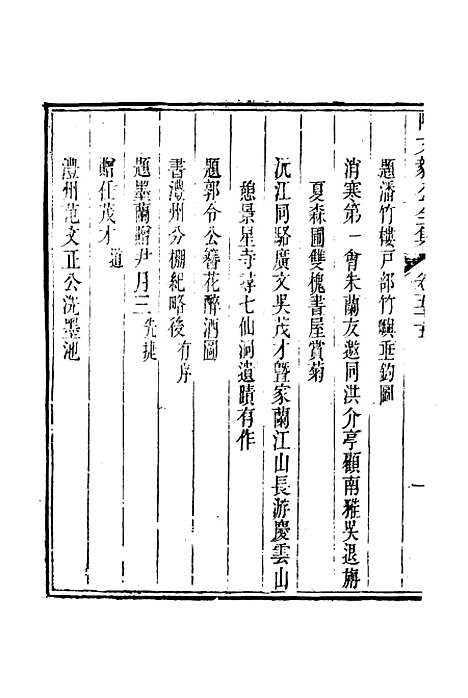 陶文毅公全集 卷五十
一
題潘竹樓戸部竹嶼垂釣圖
消寒第一會朱蘭友邀同洪介亭顧南雅吳退旃
夏森圃雙槐書屋賞菊
沅江同駱廣文吳茂才暨家蘭江山長游慶雲山
憩景星寺尋七仙洞遺蹟有作
題郭令公簪花醉酒圖
書澧州分棚紀略後 有序
題墨蘭贈尹月三 先捷
贈任茂才 道
澧州范文正公洗墨池